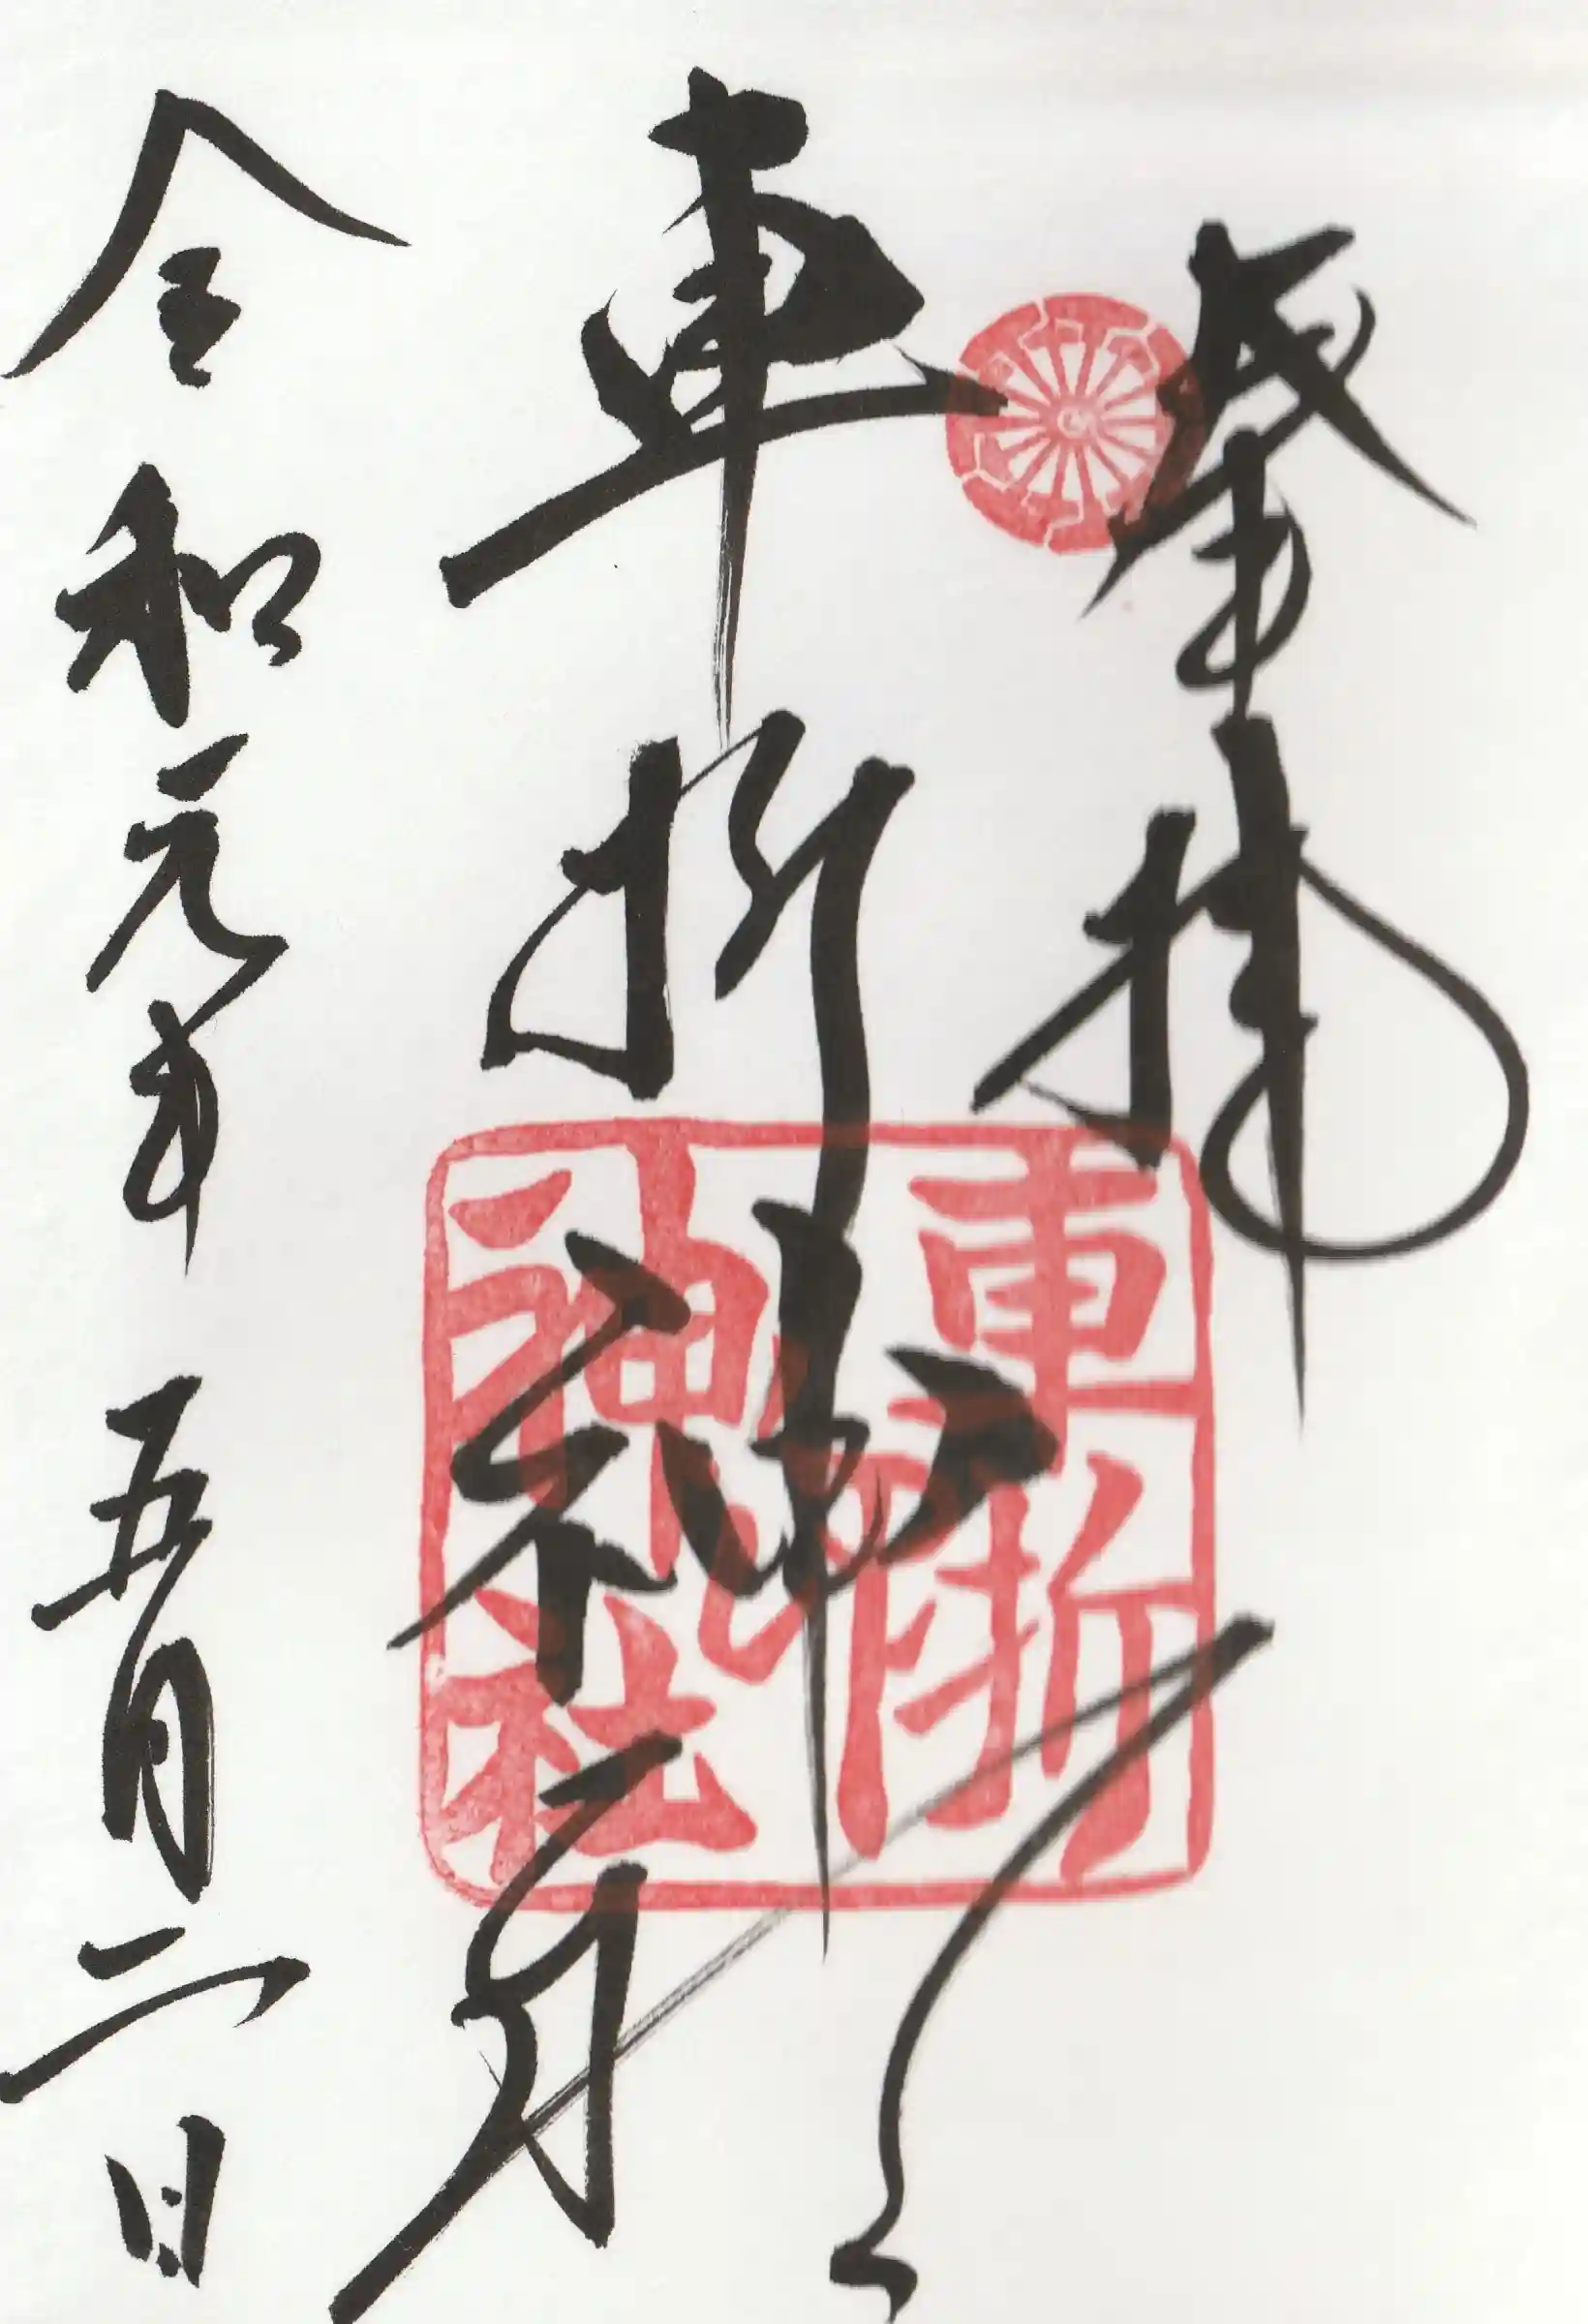 奉拝
車折神社
車折神社
令和元年 五月二日